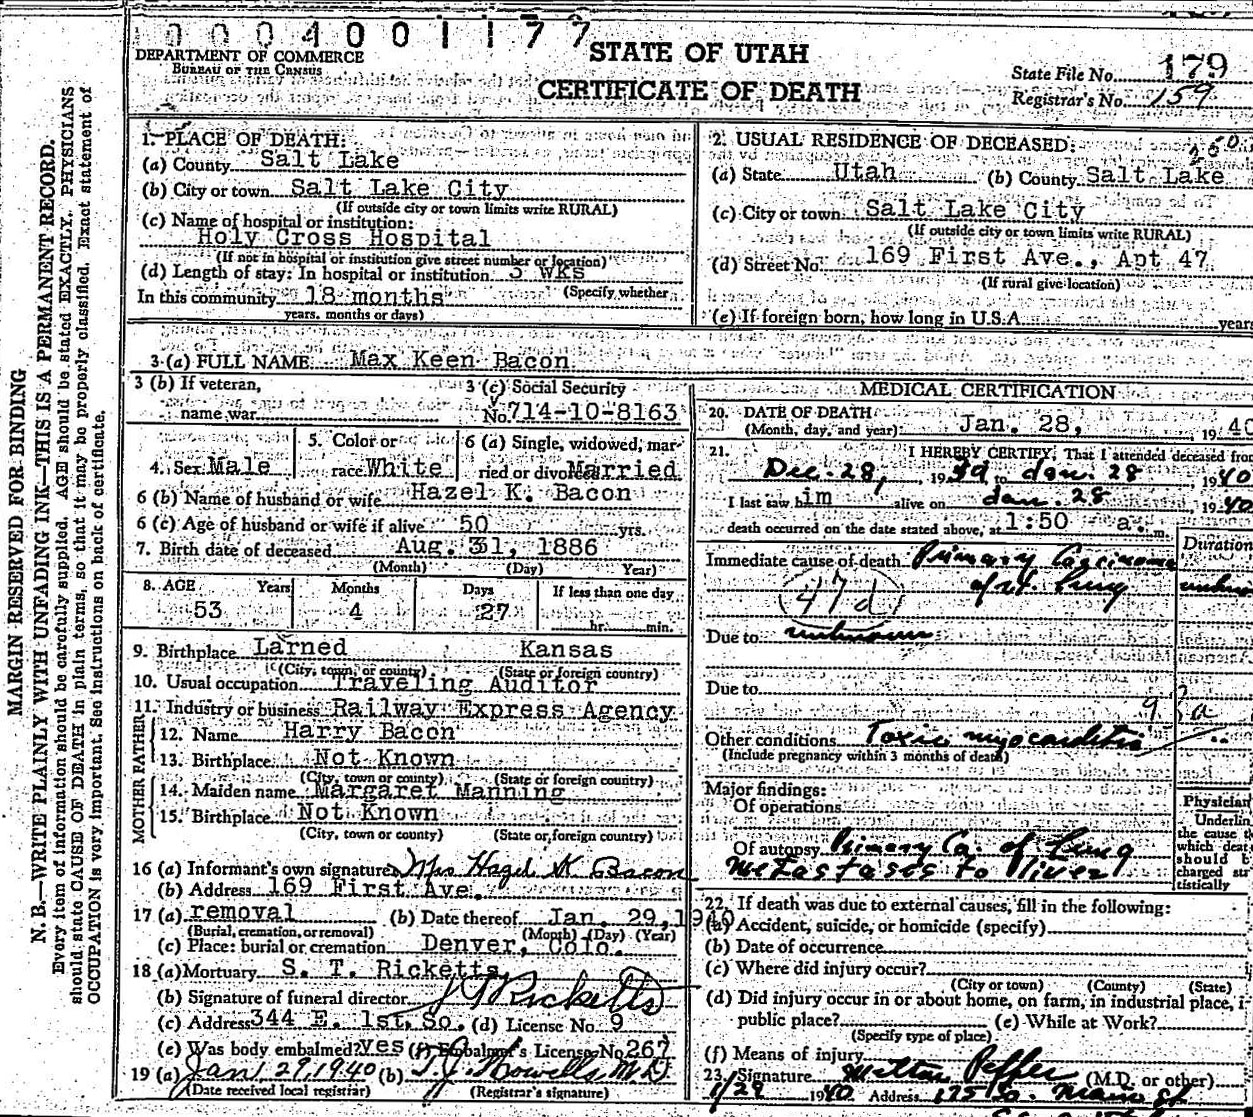 0004001177
DEPARTMENT OF COMMERCE
BUREAU OF THE CENSUS
STATE OF UTAH
CERTIFICATE OF DEATH
State File No. 179
Registrar's No. 159
MARGIN RESERVED FOR BINDING
N. B.—WRITE PLAINLY WITH UNFADING INK—THIS IS A PERMANENT RECORD.
Every item of information should be carefully supplied. AGE should be stated EXACTLY. PHYSICIANS
should state CAUSE OF DEATH in plain terms, so that it may be properly classified. Exact statement of
OCCUPATION is very important. See instructions on back of certificate.
1. PLACE OF DEATH:
(a) County Salt Lake
(b) City or town Salt Lake City
(If outside city or town limits write RURAL)
(c) Name of hospital or institution:
Holy Cross Hospital
(If not in hospital or institution give street number or location)
(d) Length of stay: In hospital or institution 3 wks
(Specify whether
In this community 18 months
years, months or days)
2. USUAL RESIDENCE OF DECEASED:
(a) State Utah (b) County Salt Lake
(c) City or town Salt Lake City
(If outside city or town limits write RURAL)
(d) Street No. 169 First Ave., Apt 47
(If rural give location)
(e) If foreign born, how long in U.S.A. years
3 (a) FULL NAME Max Keen Bacon
3 (b) If veteran,
name war
3 (c) Social Security
No. 714-10-8163
4. Sex Male
5. Color or
race White
6 (a) Single, widowed, mar-
ried or divorced Married
6 (b) Name of husband or wife Hazel K. Bacon
6 (c) Age of husband or wife if alive 50 yrs.
7. Birth date of deceased Aug. 31, 1886
(Month) (Day) Year)
8. AGE Years Months Days If less than one day
53 4 27 hr. min.
9. Birthplace Larned Kansas
(City, town, or county) (State or foreign country)
10. Usual occupation Traveling Auditor
11. Industry or business Railway Express Agency
FATHER
12. Name Harry Bacon
13. Birthplace Not Known
(City, town or county) (State or foreign country)
MOTHER
14. Maiden name Margaret Manning
15. Birthplace Not Known
(City, town or county) (State or foreign country)
16 (a) Informant's own signature Mrs Hazel K Bacon
(b) Address 169 First Ave.
17 (a) removal (b) Date thereof Jan. 29, 1940
(Burial, cremation, or removal) (Month) (Day) (Year)
(c) Place: burial or cremation Denver, Colo.
18 (a) Mortuary S. T. Ricketts
(b) Signature of funeral director S T Ricketts
(c) Address 344 E. 1st. So. (d) License No. 9
(e) Was body embalmed? yes (f) Embalmer's License No. 267
19 (a) Jan 29, 1940 (b) T. J. Howells M.D
(Date received local registrar) (Registrar's signature)
MEDICAL CERTIFICATION
20. DATE OF DEATH
(Month, day, and year) Jan. 28, 1940
21. I HEREBY CERTIFY, That I attended deceased from
Dec. 28, 1939 to Jan. 28 1940
I last saw him alive on Jan. 28 1940
death occurred on the date stated above, at 1:50 a. m.
Duration
Immediate cause of death Primary Carcinoma
of rt. Lung
47d
Due to unknown
Due to
Other conditions Toxic myocarditis
(Include pregnancy within 3 months of death)
Major findings:
Of operations
Of autopsy Primary Ca. of Lung
metastases to liver
Physician
Underlin
the cause t
which deat
should b
charged sta
tistically
22. If death was due to external causes, fill in the following:
(a) Accident, suicide, or homicide (specify)
(b) Date of occurrence
(c) Where did injury occur?
(City or town) (County) (State)
(d) Did injury occur in or about home, on farm, in industrial place, i
public place? (e) While at Work?
(Specify type of place)
(f) Means of injury
23. Signature Milton Pepper (M.D. or other)
1/29 1940 Address 175 So. Main St